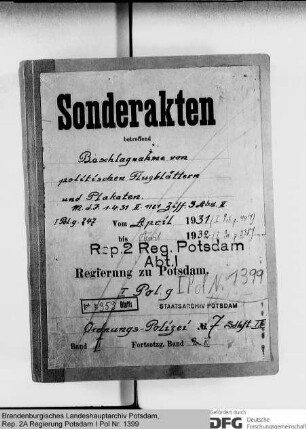 Sonderakten
betreffend
Beschlagnahme von
politischen Flugblättern
und Plakaten.
M.d.I. 1.4.31 II. 1121 Ziff. 3 Abs. II
I Pol.g.747 Vom April 1931
bis 1932
Rep. 2 Reg. Potsdam
Abt. I
Regierung zu Potsdam,
I Pol. g I Pol Nr. 1399
STAATSARCHIV POTSDAM
Ordnungs-Polizei No 7
Band I Fortsetzg. Band
Brandenburgisches Landeshauptarchiv Potsdam,
Rep. 2A Regierung Potsdam I Pol Nr. 1399
Gefördert durch
DFG Deutsche
Forschungsgemeinschaft